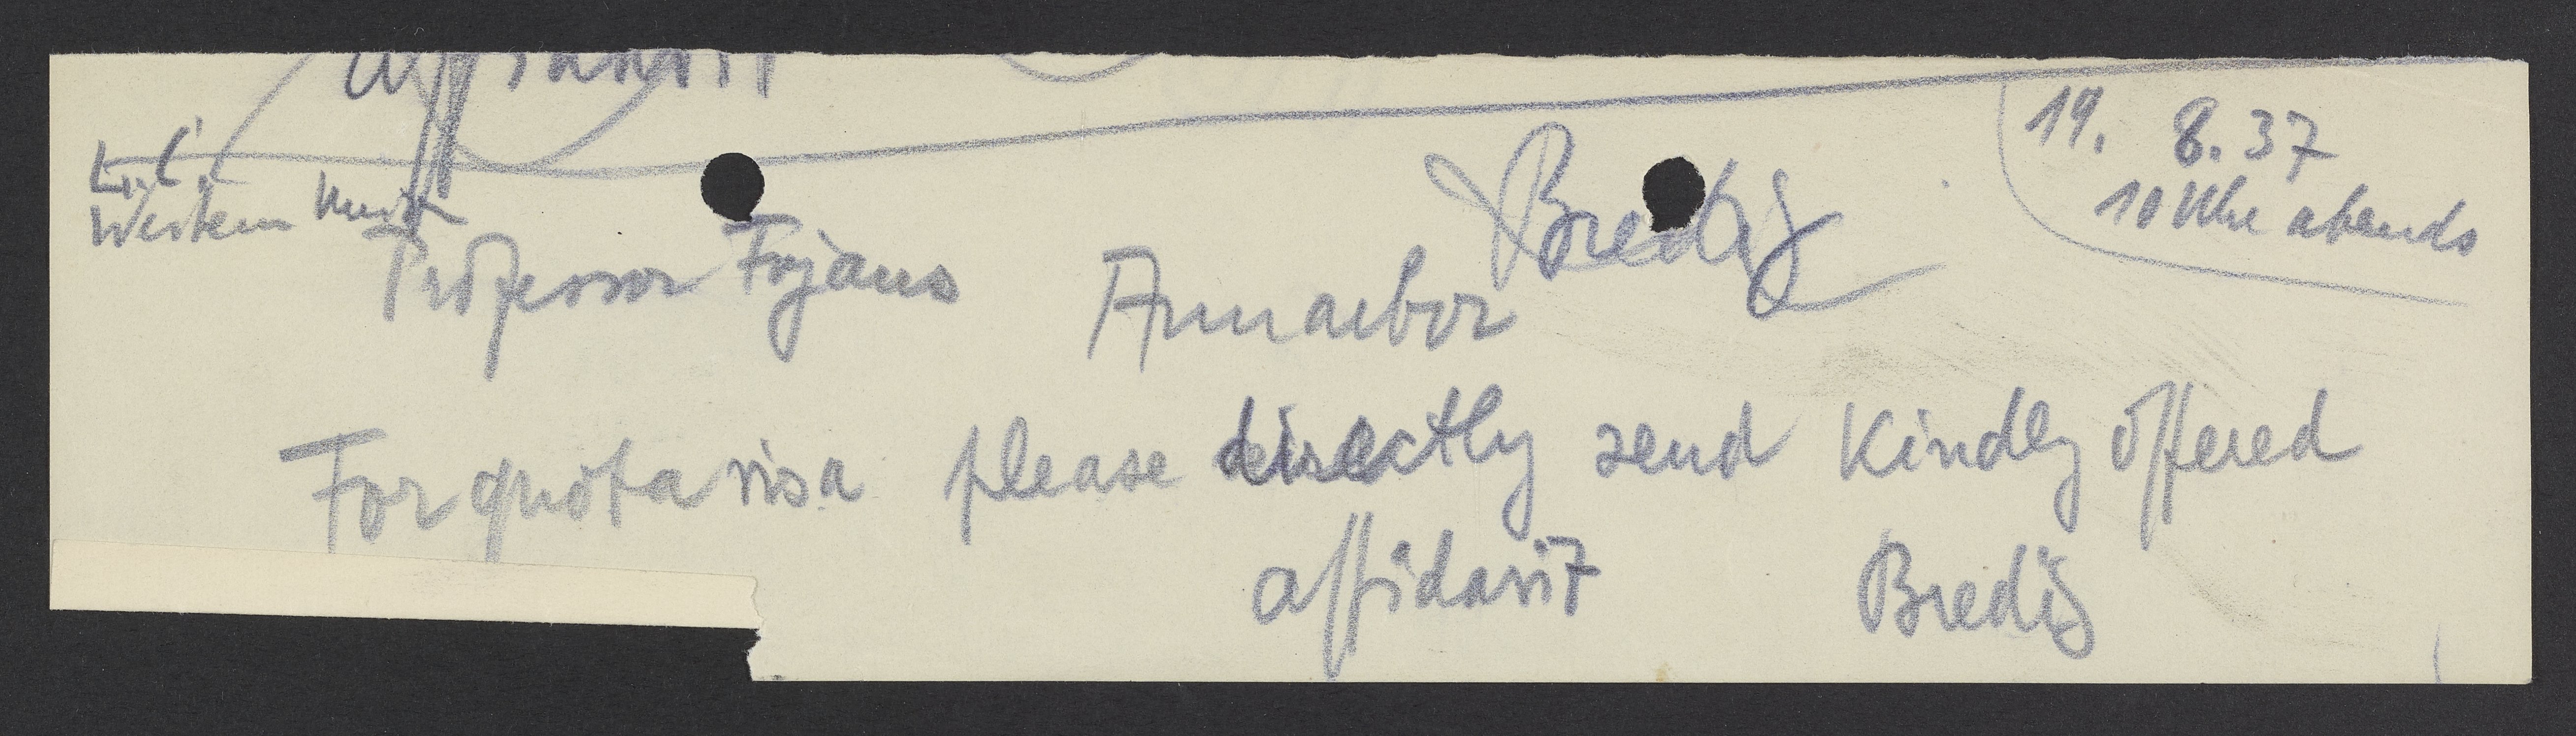 affidavit
Bredig
19. 8. 37
10 Uhr abends
Western
Professor Fajans Annarbor
For quota visa please directly send kindly offered
affidavit Bredig